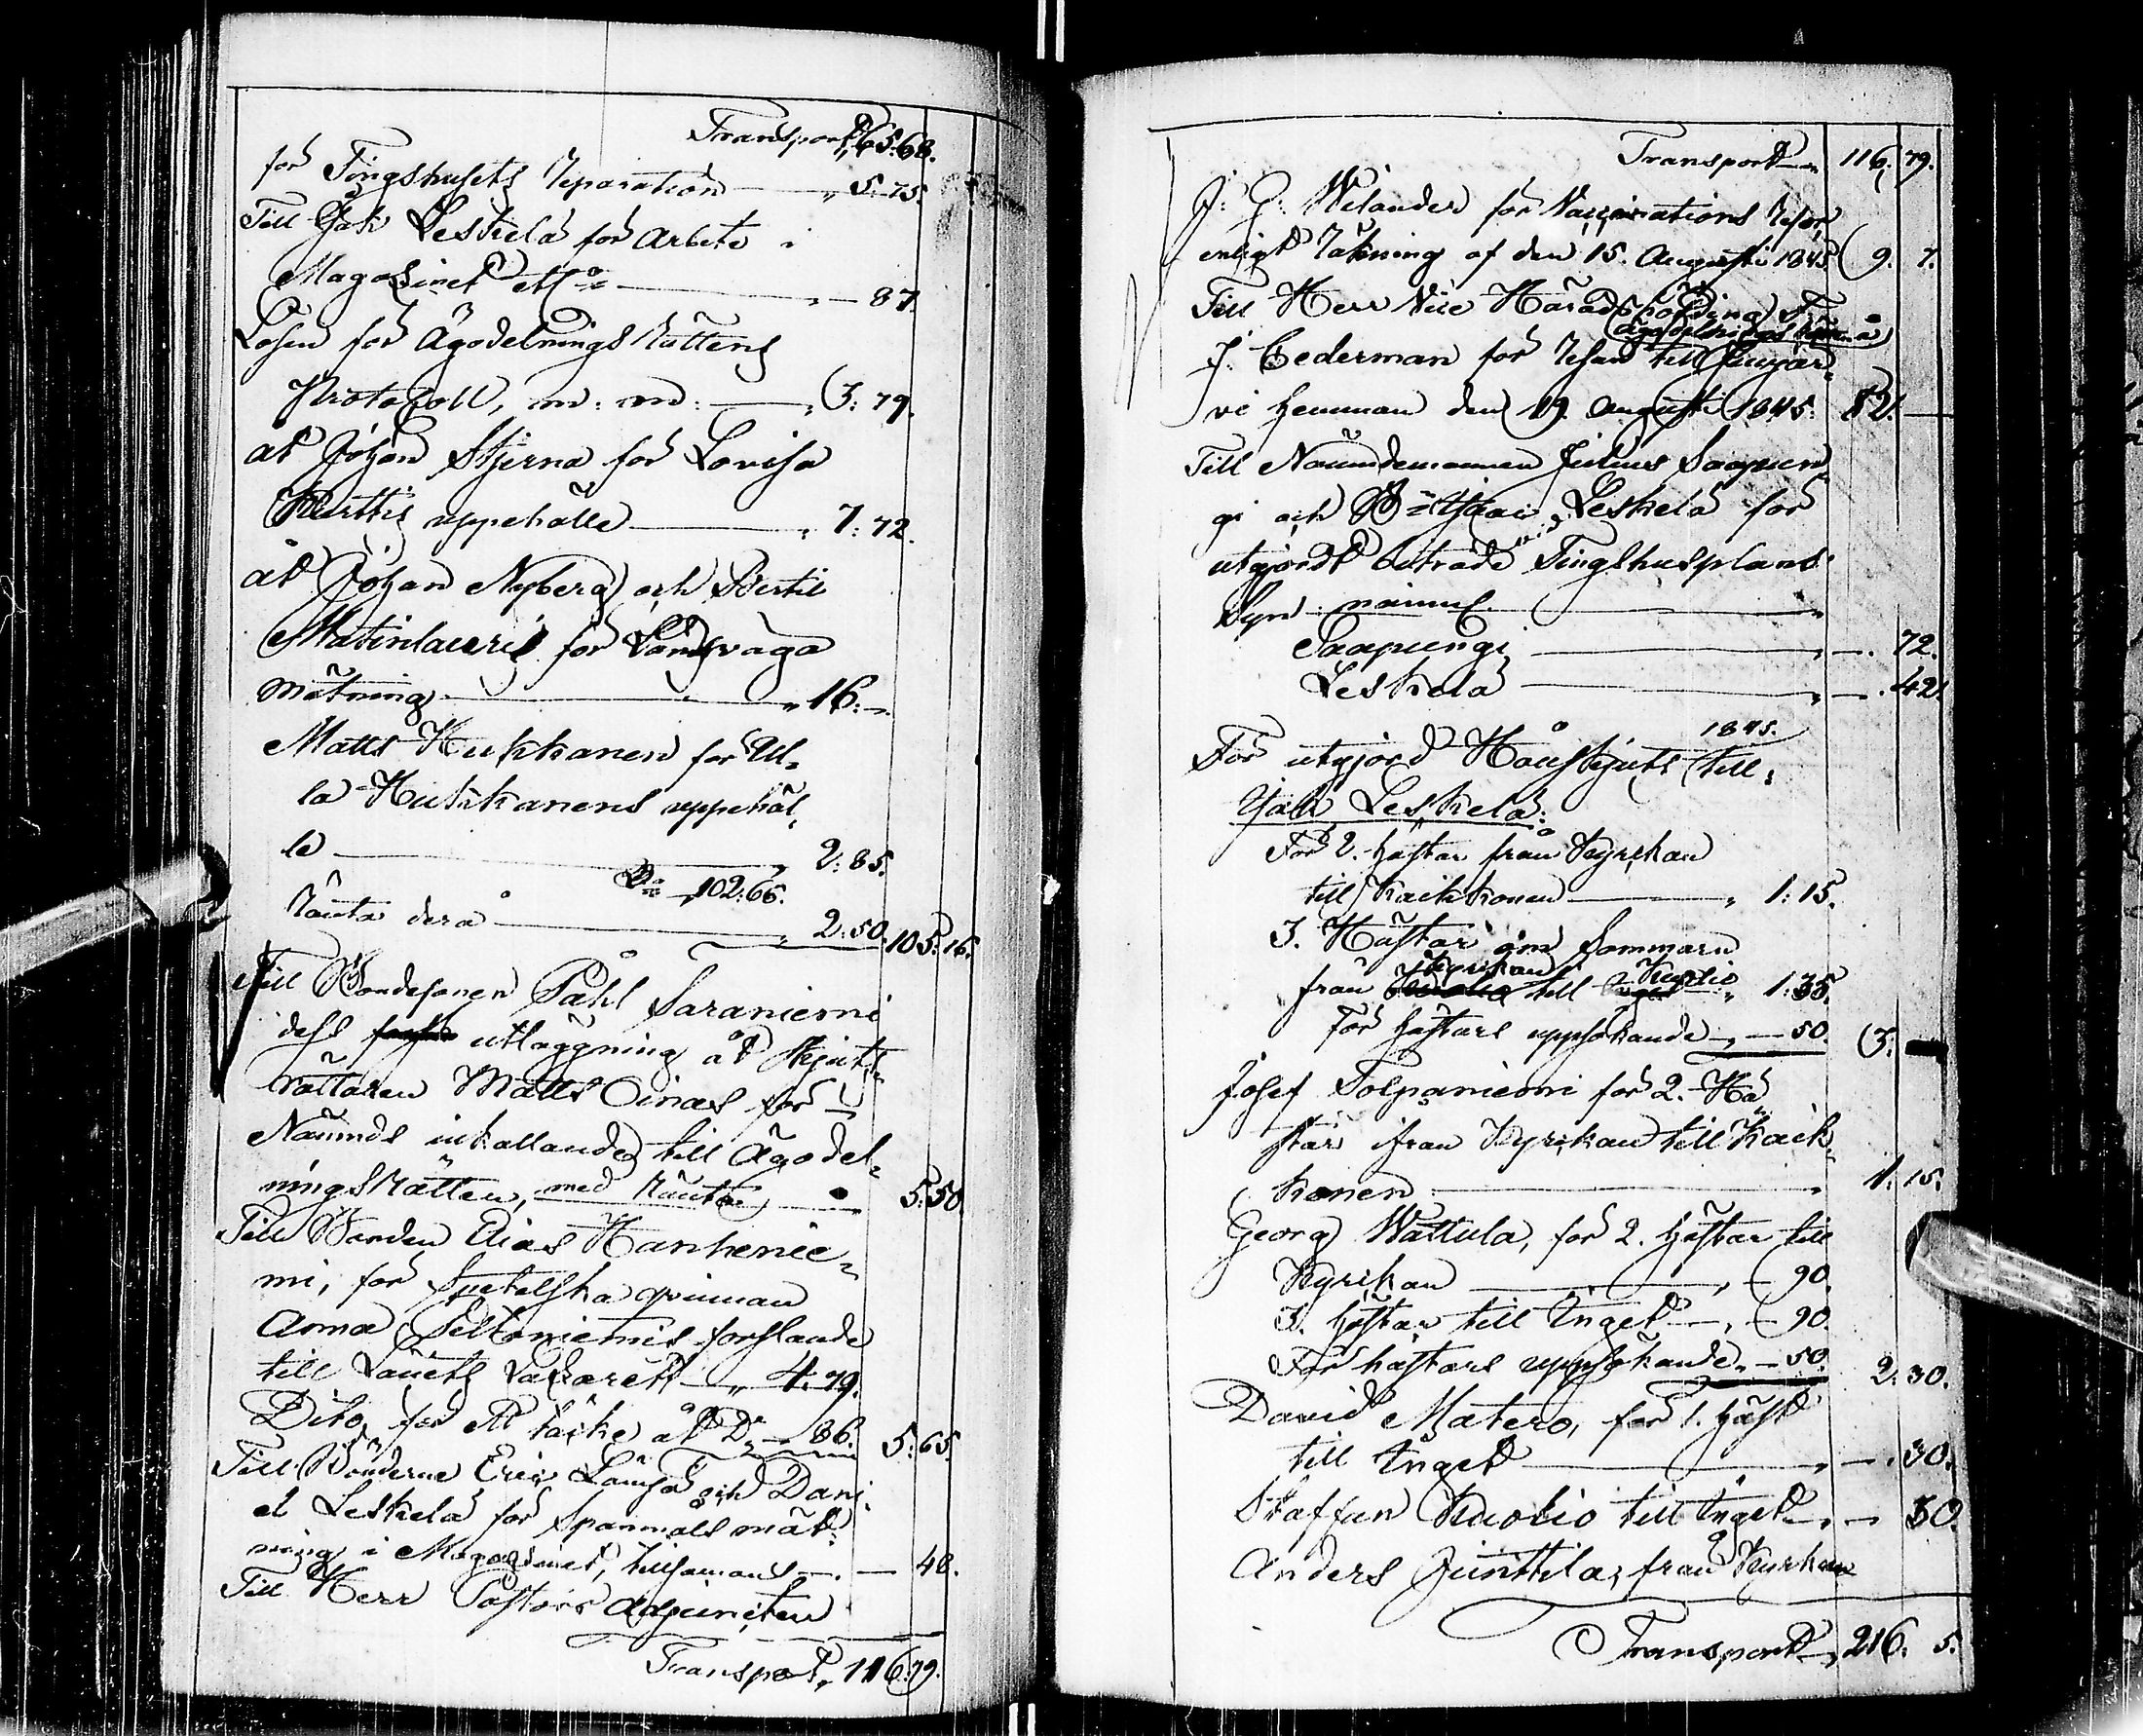 Transport, 65:68.
för Tingshusets Reparation — " 5:75.
Till Isak Leskelä för arbete i
Magasinet &c — " — 87.
Lösen för Ägodelnings Rättens
Protocoll, m: m: — " 3:79.
åt Johan Stjerna för Lovisa
Perttis uppehälle — " 7:72.
åt Johan Nyberg och Bertil
Matinlauri för Landsväga
mätning — " 16:—
Matts Hukkanen för Ul-
la Hukkanens uppehäl-
le — " 2:85.
S:a 102:66.
Ränta derå — " 2:50. 105:16.
Till Bondesonen Påhl Saraniemi
dess utläggning åt Skjuts
rättaren Matts Oinas för
Nämnds inkallande till Ägodel-
nings Rätten, med Ränta " 5:50.
Till Bonden Elias Hanhenie-
mi, för Spetelska qvinnan
Anna Peltoniemis forslande
till Länets Lazarett — " 4:79.
Dito för ett täcke åt D:o — 86. 5:65.
Till Bönderne Eric Länsä och Dani-
el Leskelä för Spannmåls mät-
ning i Magasinet, tillsamans — " — 48.
Till Herr Pastors Adjuncten
Transport, 116:79.
Transport — " 116. 79.
J: G: Welander för Vaccinations resor
enligt Räkning af den 15. Augusti 1845 9. 7.
Till Herr Vice Häradshöfding F.
ägodelnings
J. Cederman för Resan till
vi hemman den 19. Augusti 1845. 82. —
Till Nämndemannen Julius Saapun-
gi och Isaac Leskelä för
utgjordt biträde vid Tingshusplans
Syn nämnl.
Saapungi — " —. 72.
Leskelä — " —. 42.
1845.
För utgjord Hållskjuts till:
Isak Leskelä:
För 2. hästar från Kyrckan
till Kaikkonen — " 1:15.
3. Hästar om Sommarn
Kyrckan Kuolio
från till " 1:35.
För hästars uppsökande — " — 50. 3. —
Josef Tolpaniemi för 2. Hä-
star ifrån Kyrckan till Kaik-
konen — " 1. 15.
Georg Wattula, för 2. hästar till
Kyrckan — " — 90.
3. hästar till Inget — " — 90.
För hästars uppsökande " — 50. 2. 30.
David Matero, för 1. häst
till Inget — " —. 30.
Staffan Kuolio till Inget — " — 30.
Anders Junttila, från Kyrkan
Transport — " 216. 5.